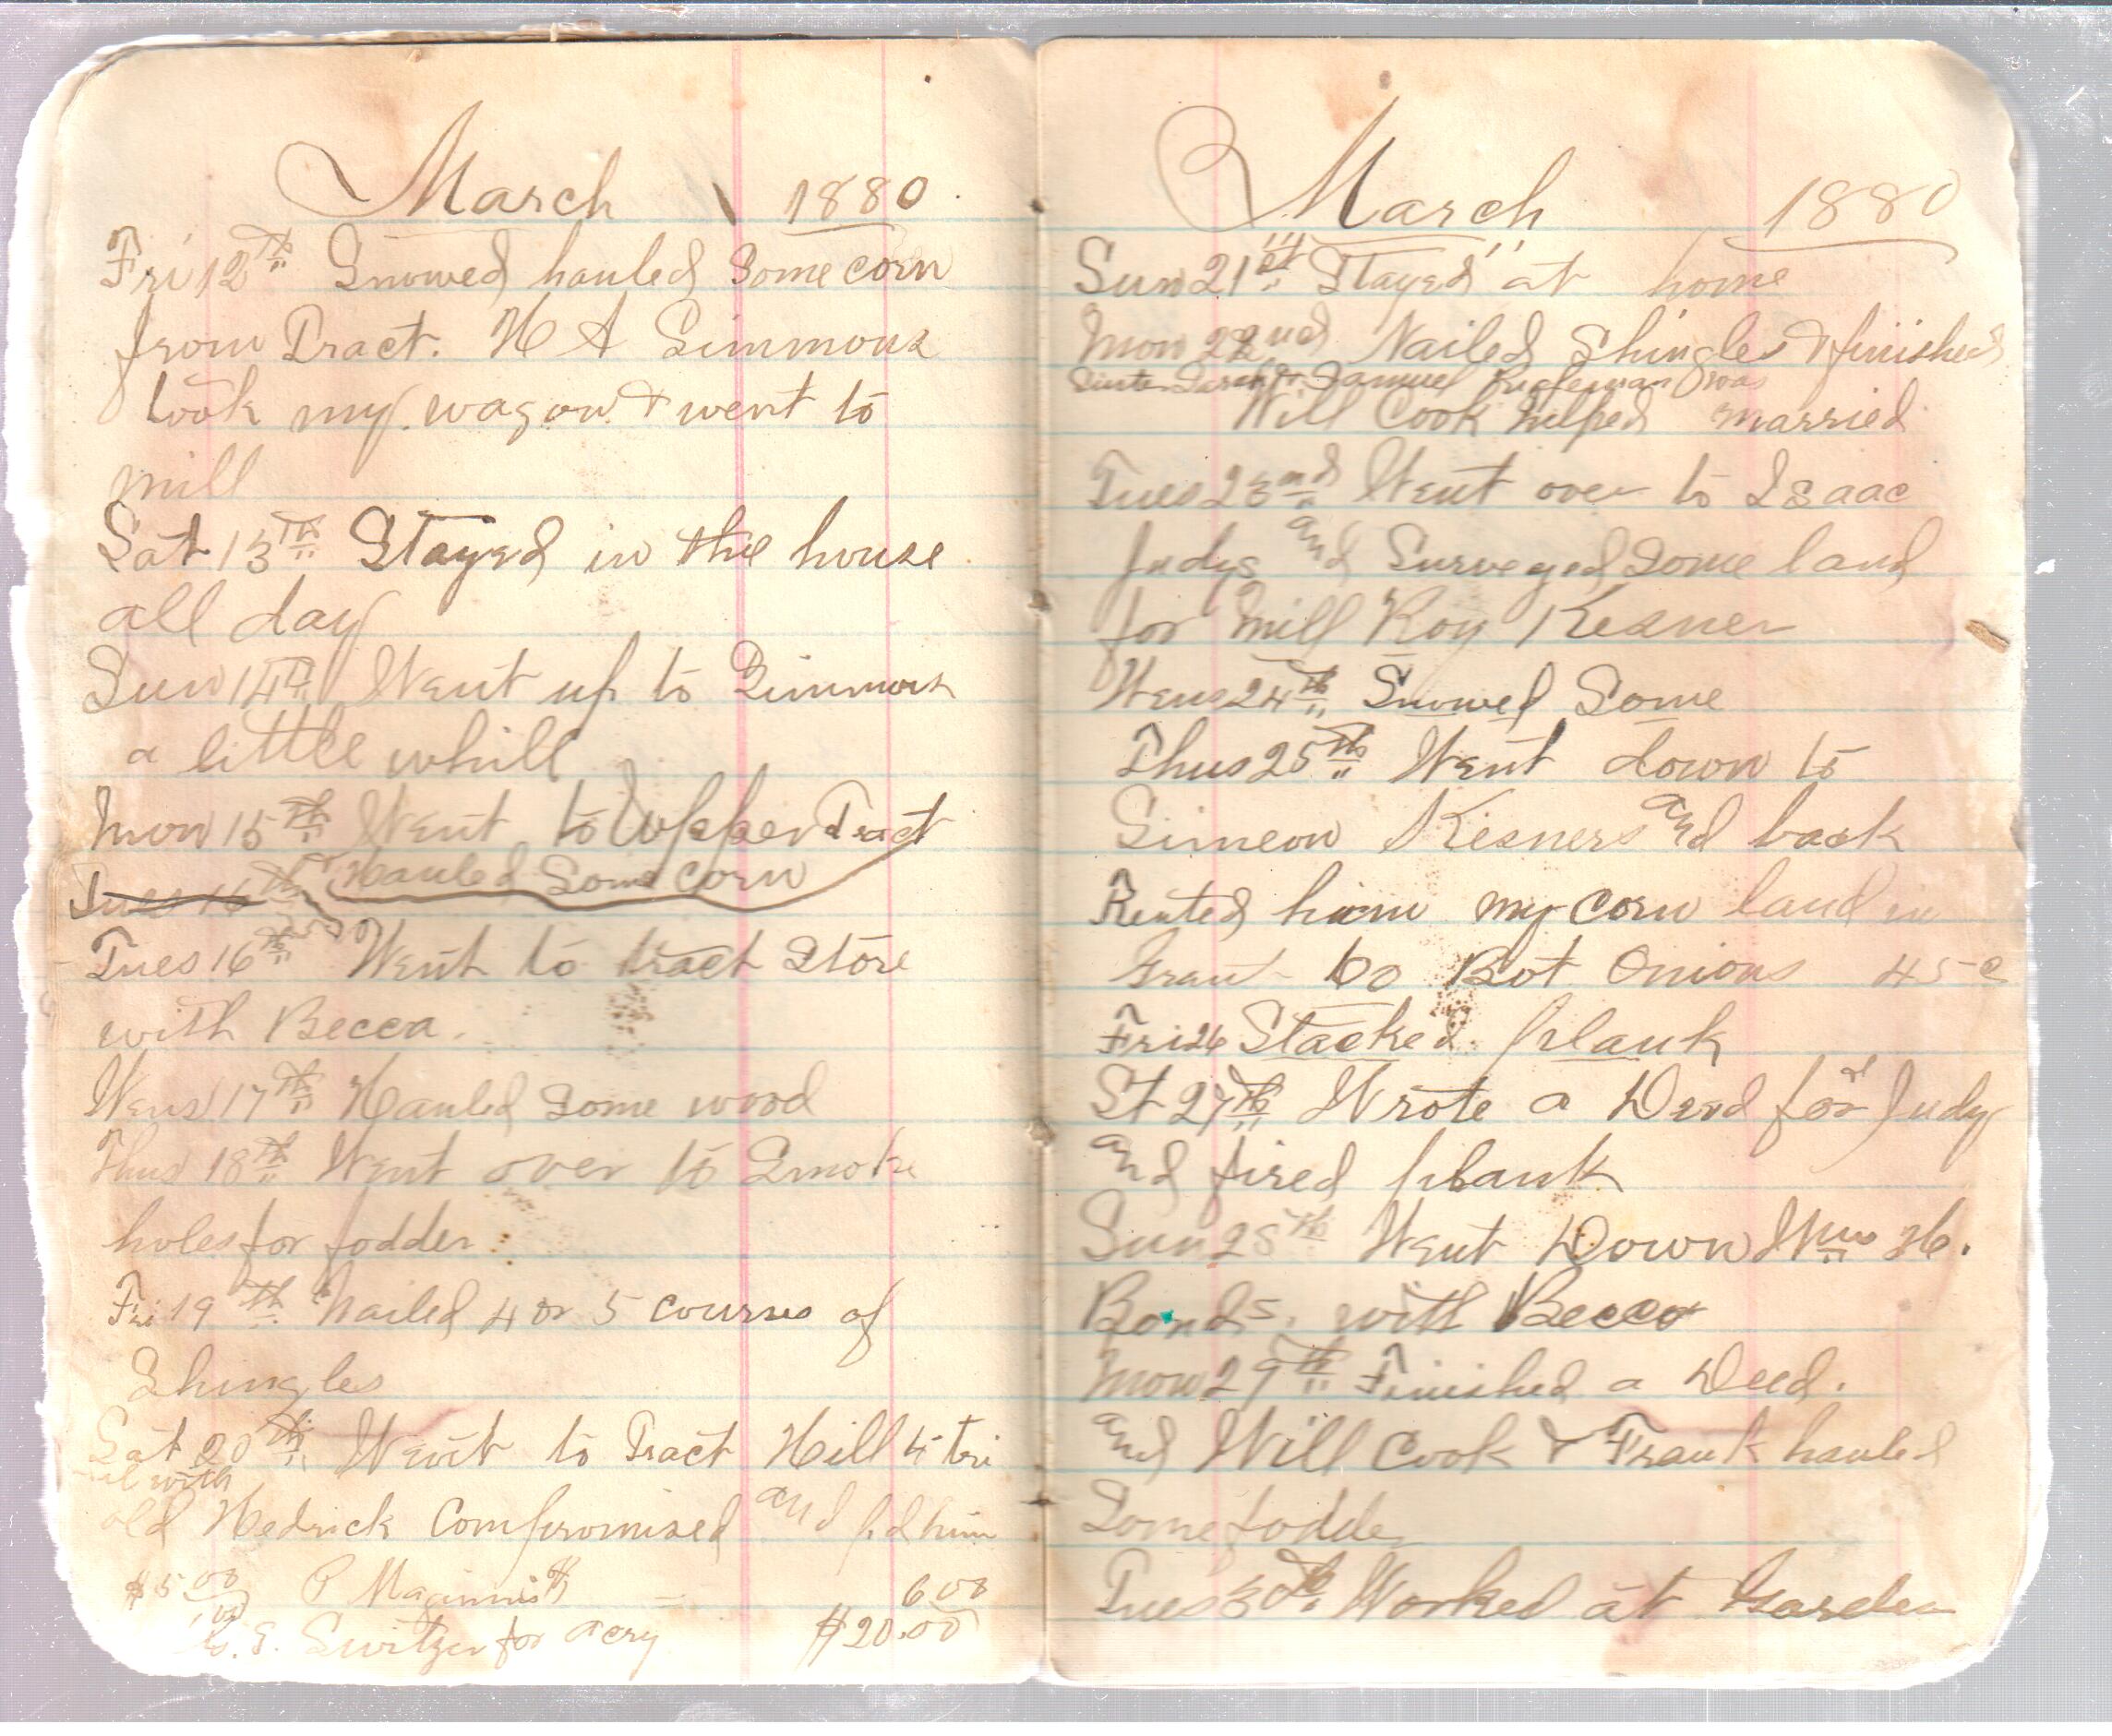 March 1880
Fri 12th Snowed hauled Some corn
from Tract. H A Simmons
took my wagon & went to
mill
Sat 13th Stayed in the house
all day
Sun 14th Went up to Simmons
a little whill
Mon 15th Went to Upper Tract
Tues 16th Hauled Some corn
Tues 16th Went to tract Store
with Becca.
Wens 17th Hauled Some wood
Thus 18th Went over to Smoke
holes for fodder
Fri 19th Nailed 4 or 5 courses of
Shingles
Sat 20th Went to Tract Hill
with
old Hedrick Compromised and pd him
$5 00 P 6 00
S. Switzer for $20.00
March 1880
Sun 21st Stayed at home
Mon 22nd Nailed Shingles & finished
Samuel was
Will Cook helped married
Tues 23nd Went over to Isaac
Judys and Surveyed Some land
for Mill Roy Kesner
Wens 24th Snowed Some
Thus 25th Went down to
Simeon Kesners and back
Rented him my corn land in
Grant Co Bot Onions 45c
Fri 26 Stacked plank
St 27th Wrote a Deed for Judy
and fired plank
Sun 28th Went Down Wm H.
Bonds. with Becca
Mon 29th Finished a Deed.
and Will Cook & Frank hauled
Some fodder
Tues 30th Worked at Garden